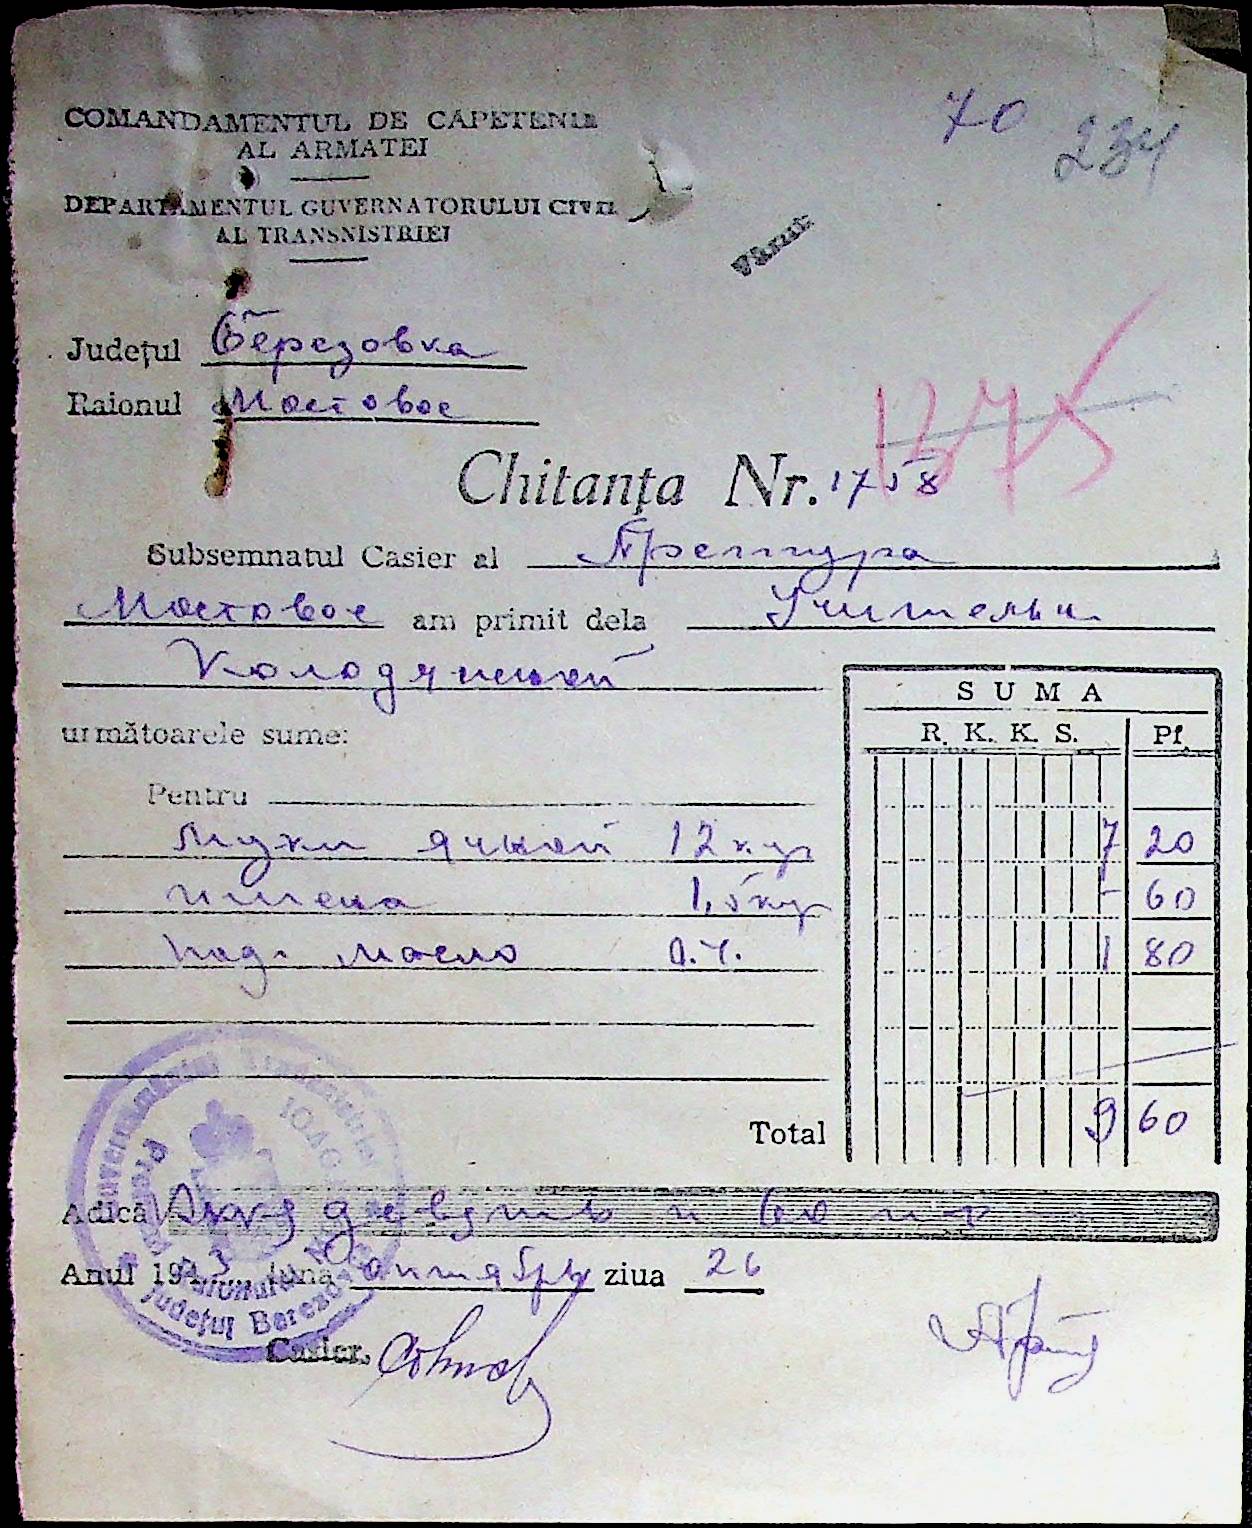 COMANDAMENTUL DE CAPETENIE
AL ARMATEI
70 234
DEPARTAMENTUL GUVERNATORULUI CIVIL
AL TRANSNISTRIEI
Vărsat
Județul Березовка
Raionul Мостовое
1375
Chitanța Nr. 1758
Subsemnatul Casier al Претура
Мостовое am primit dela Учительн.
Колодянской
SUMA
R. K. K. S. Pf.
următoarele sume:
Pentru
Муки ячной 12 кгр 7 20
пшена 1,5 кгр - 60
под. масло 0.4. 1 80
Total 9 60
Adică девять и 60 пф
Anul 1943 luna Октябрь ziua 26
Casier,
Guvernământul Transnistriei
Județul Berezovca